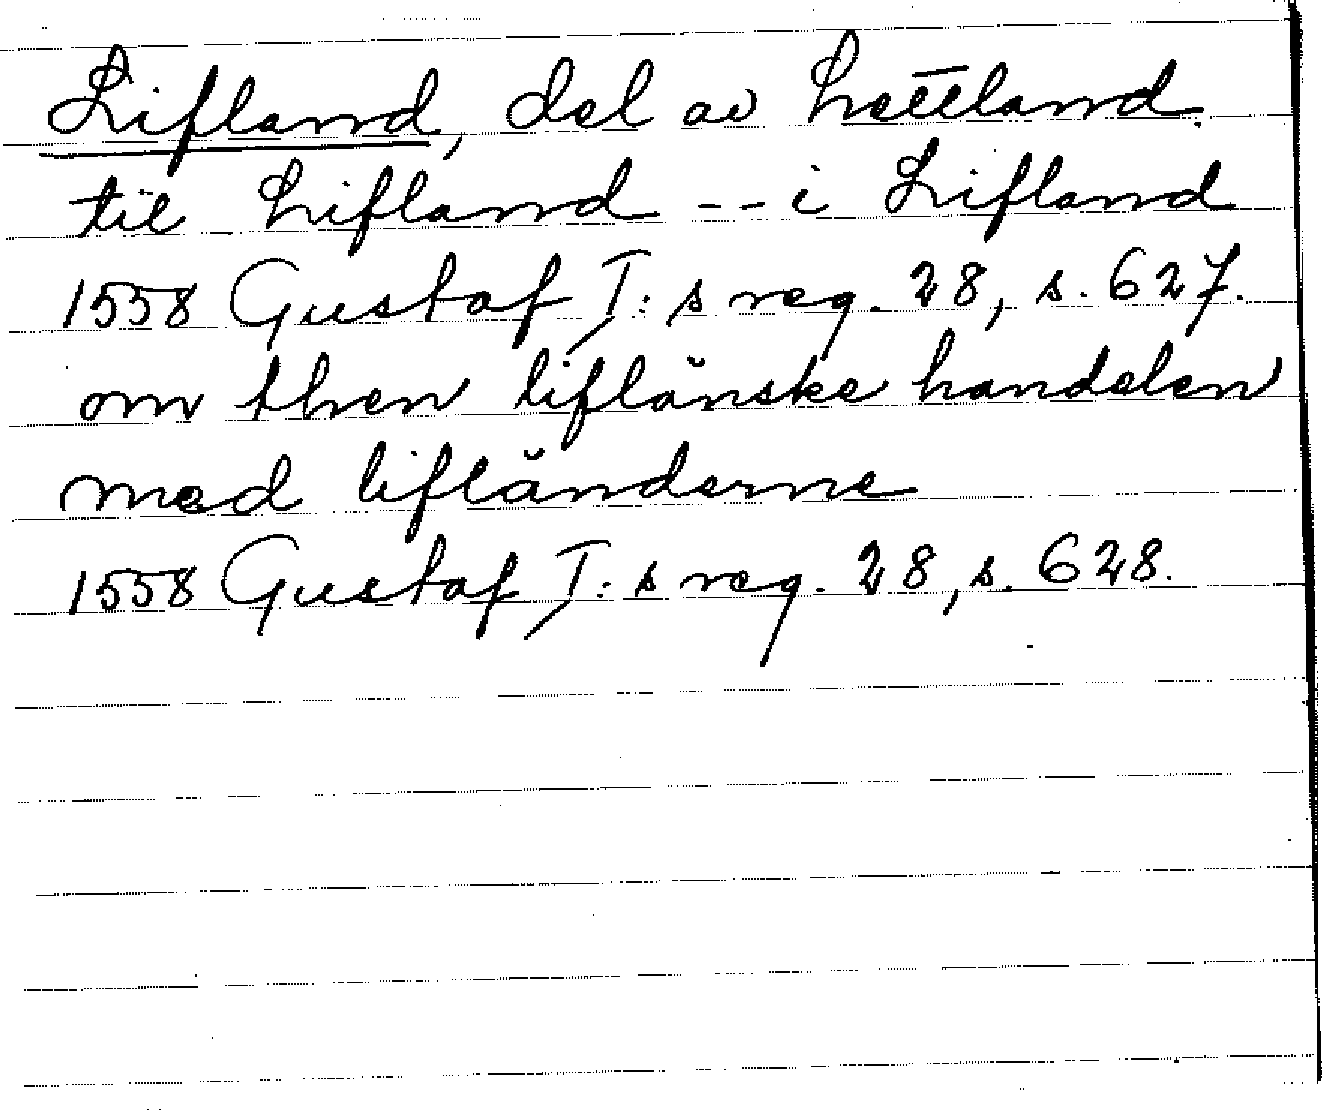 Lifland, del av Lettland.
til Lifland -- i Lifland
1558 Gustaf I:s reg. 28, s. 627.
om then liflänske handelen
med lifländerne
1558 Gustaf I:s reg. 28, s. 628.